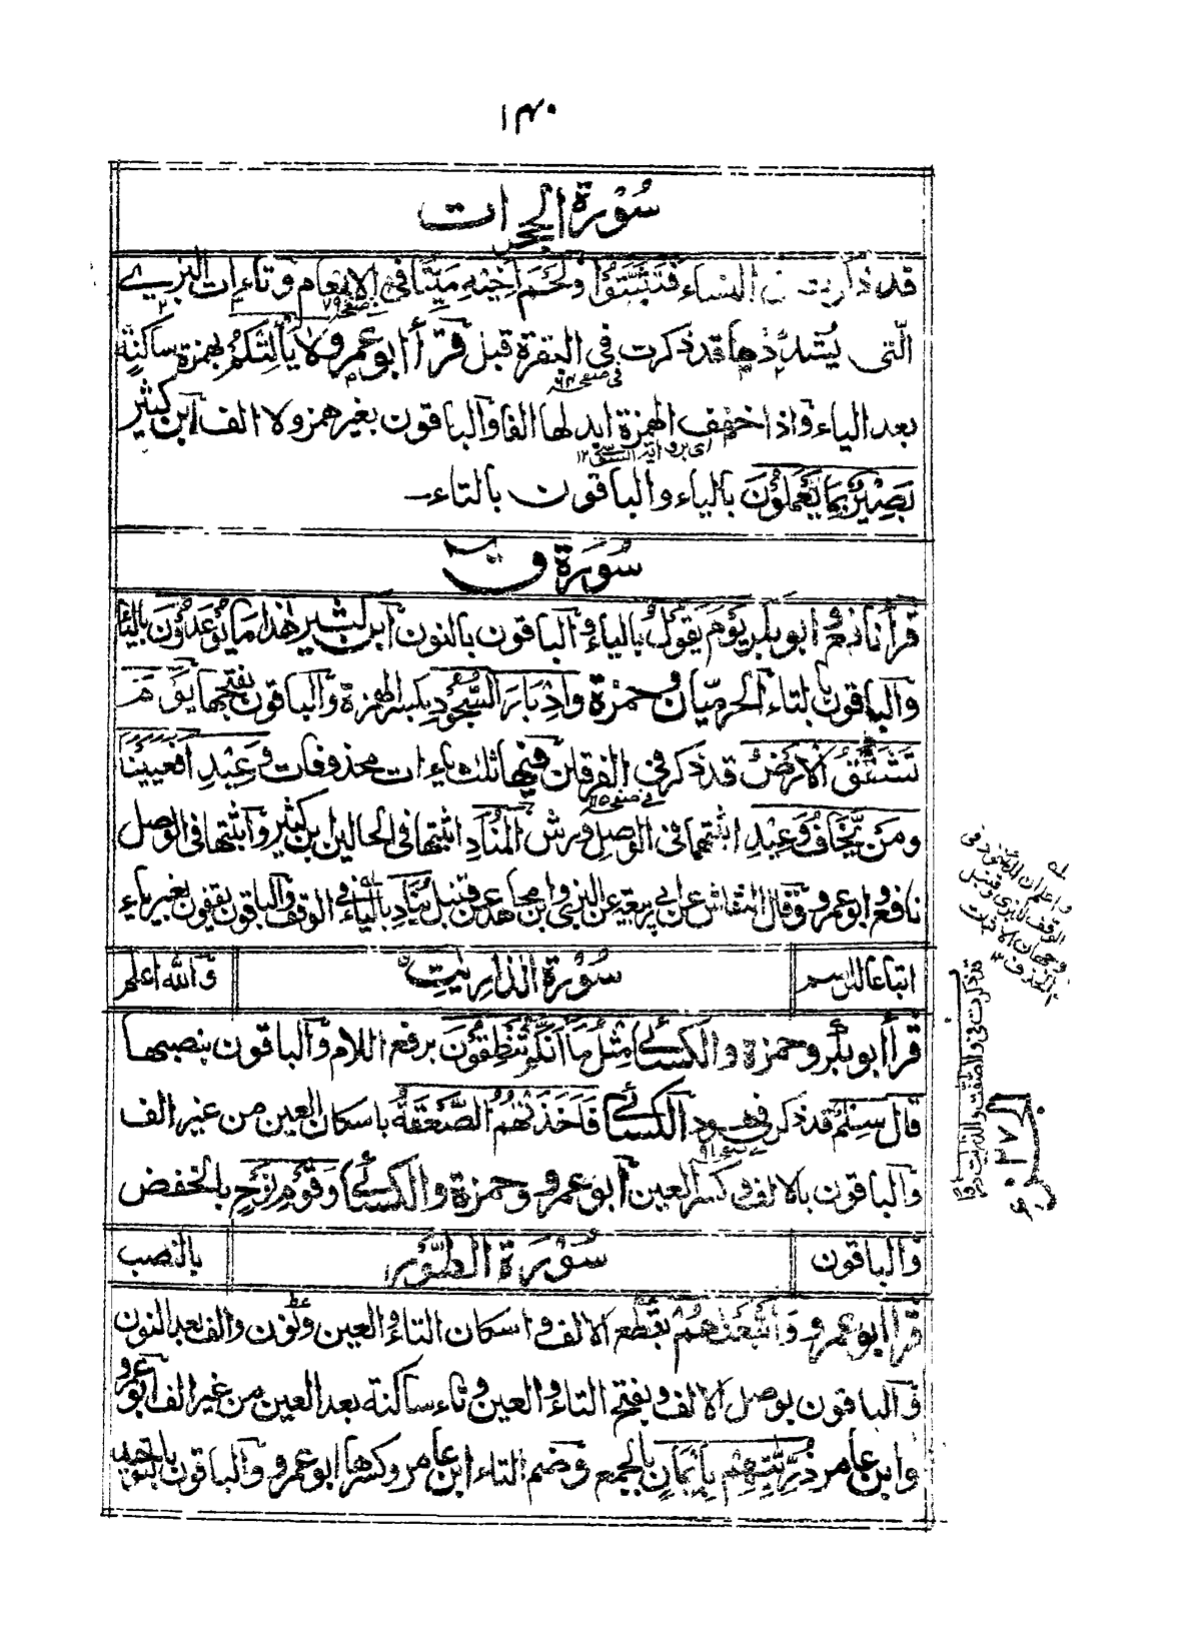 ۱۴۰
سُوْرَة الحجرات
قد ذكرت النساء فَتَثَبَّتُوْا ولَحْمَ اَخِيْهِ مَيِّتًا فى الانعام وتاءات البزى
الّتى يُشدّدها قد ذكرت فى البقرة قبل قرأ ابو عمرو ولا يَأْلِتْكُمْ بهمزة ساكنة
بعد الياء واذا خفف الهمزة ابدلها الفا والباقون بغير همز ولا الف ابن كثير
بَصِيْرٌ بِمَا يَعْمَلُوْنَ بالياء والباقون بالتاء
سُوْرَة ق
قرأ نافع وابو بكر يَوْمَ يَقُوْلُ بالياء والباقون بالنون ابن كثير هٰذا مَا يُوْعَدُوْنَ بالياء
والباقون بالتاء الحرميّان وحمزة وَاِدْبَارَ السُّجُوْدِ بكسر الهمزة والباقون بفتحها يَوْمَ
تَشَقَّقُ الْاَرْضُ قد ذكر فى الفرقان فيها ثلث ياءات محذوفات وَعِيْدِ اَفَعَيِيْنَا
ومَنْ يَّخَافُ وَعِيْدِ اثبتهما فى الوصل ورش الْمُنَادِ اثبتها فى الحالين ابن كثير واثبتها فى الوصل
نافع وابو عمرو وقال النقاش عن ابى ربيعة عن البزى وابن مجاهد عن قنبل يُنَادِ بالياء فى الوقف والباقون يقفون بغير ياء
اتباعا للرسم
سُوْرَة الذاريٰت
والله اعلم
قرأ ابو بكر وحمزة والكسائى مِثْلُ مَا اَنَّكُمْ تَنْطِقُوْنَ برفع اللام والباقون بنصبها
قَالَ سِلْمٌ قد ذكر فى هود الكسائى فَاَخَذَتْهُمُ الصَّعْقَةُ باسكان العين من غير الف
والباقون بالالف وكسر العين ابو عمرو وحمزة والكسائى وَقَوْمِ نُوْحٍ بالخفض
والباقون
سُوْرَة الطُّوْر
بالنصب
قرأ ابو عمرو وَاَتْبَعْنٰهُمْ بقطع الالف واسكان التاء والعين ونون والف بعد النون
والباقون بوصل الالف وبفتح التاء والعين وتاء ساكنة بعد العين من غير الف ابو عمرو
وابن عامر ذُرِّيّٰتِهِمْ بِاِيْمَانٍ بالجمع وضم التاء ابن عامر وكسرها ابو عمرو والباقون بالتوحيد
قد ذكرت فى والصّٰفّٰت والذريٰت
الجزو ۲۷